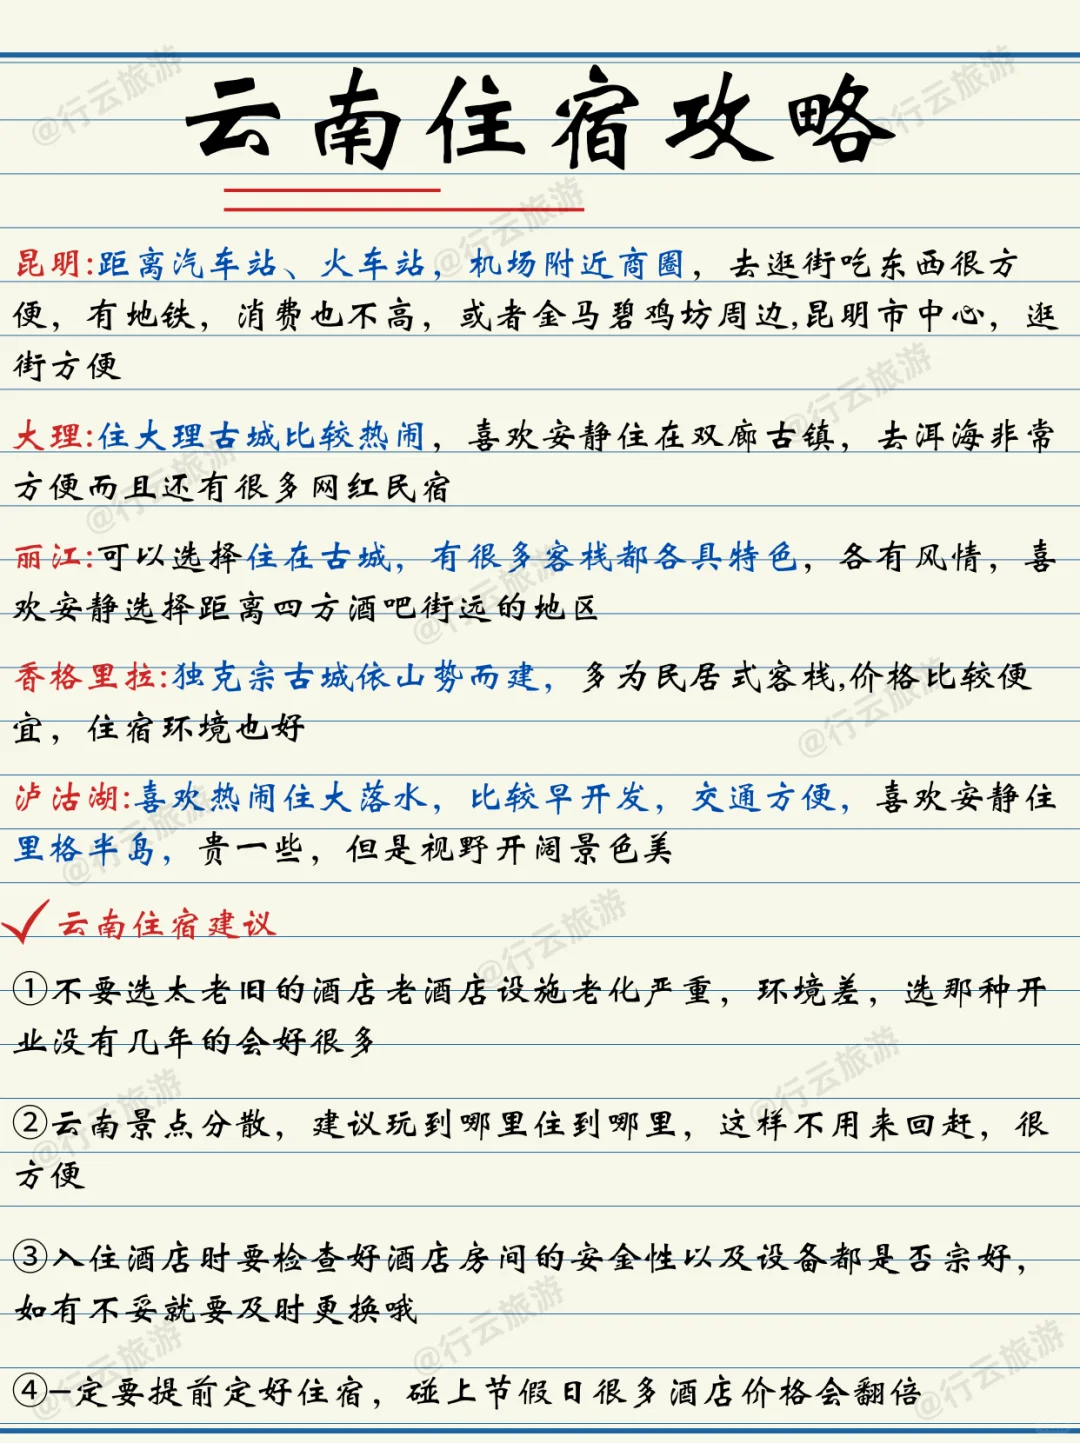 云南住宿攻略
昆明:距离汽车站、火车站，机场附近商圈，去逛街吃东西很方
便，有地铁，消费也不高，或者金马碧鸡坊周边,昆明市中心，逛
街方便
大理:住大理古城比较热闹，喜欢安静住在双廊古镇，去洱海非常
方便而且还有很多网红民宿
丽江:可以选择住在古城，有很多客栈都各具特色，各有风情，喜
欢安静选择距离四方酒吧街远的地区
香格里拉:独克宗古城依山势而建，多为民居式客栈,价格比较便
宜，住宿环境也好
泸沽湖:喜欢热闹住大落水，比较早开发，交通方便，喜欢安静住
里格半岛，贵一些，但是视野开阔景色美
云南住宿建议
①不要选太老旧的酒店老酒店设施老化严重，环境差，选那种开
业没有几年的会好很多
②云南景点分散，建议玩到哪里住到哪里，这样不用来回赶，很
方便
③入住酒店时要检查好酒店房间的安全性以及设备都是否宗好，
如有不妥就要及时更换哦
④一定要提前定好住宿，碰上节假日很多酒店价格会翻倍
@行云旅游
@行云旅游
@行云旅游
@行云旅游
@行云旅游
@行云旅游
@行云旅游
@行云旅游
@行云旅游
@行云旅游
@行云旅游
@行云旅游
@行云旅游
@行云旅游